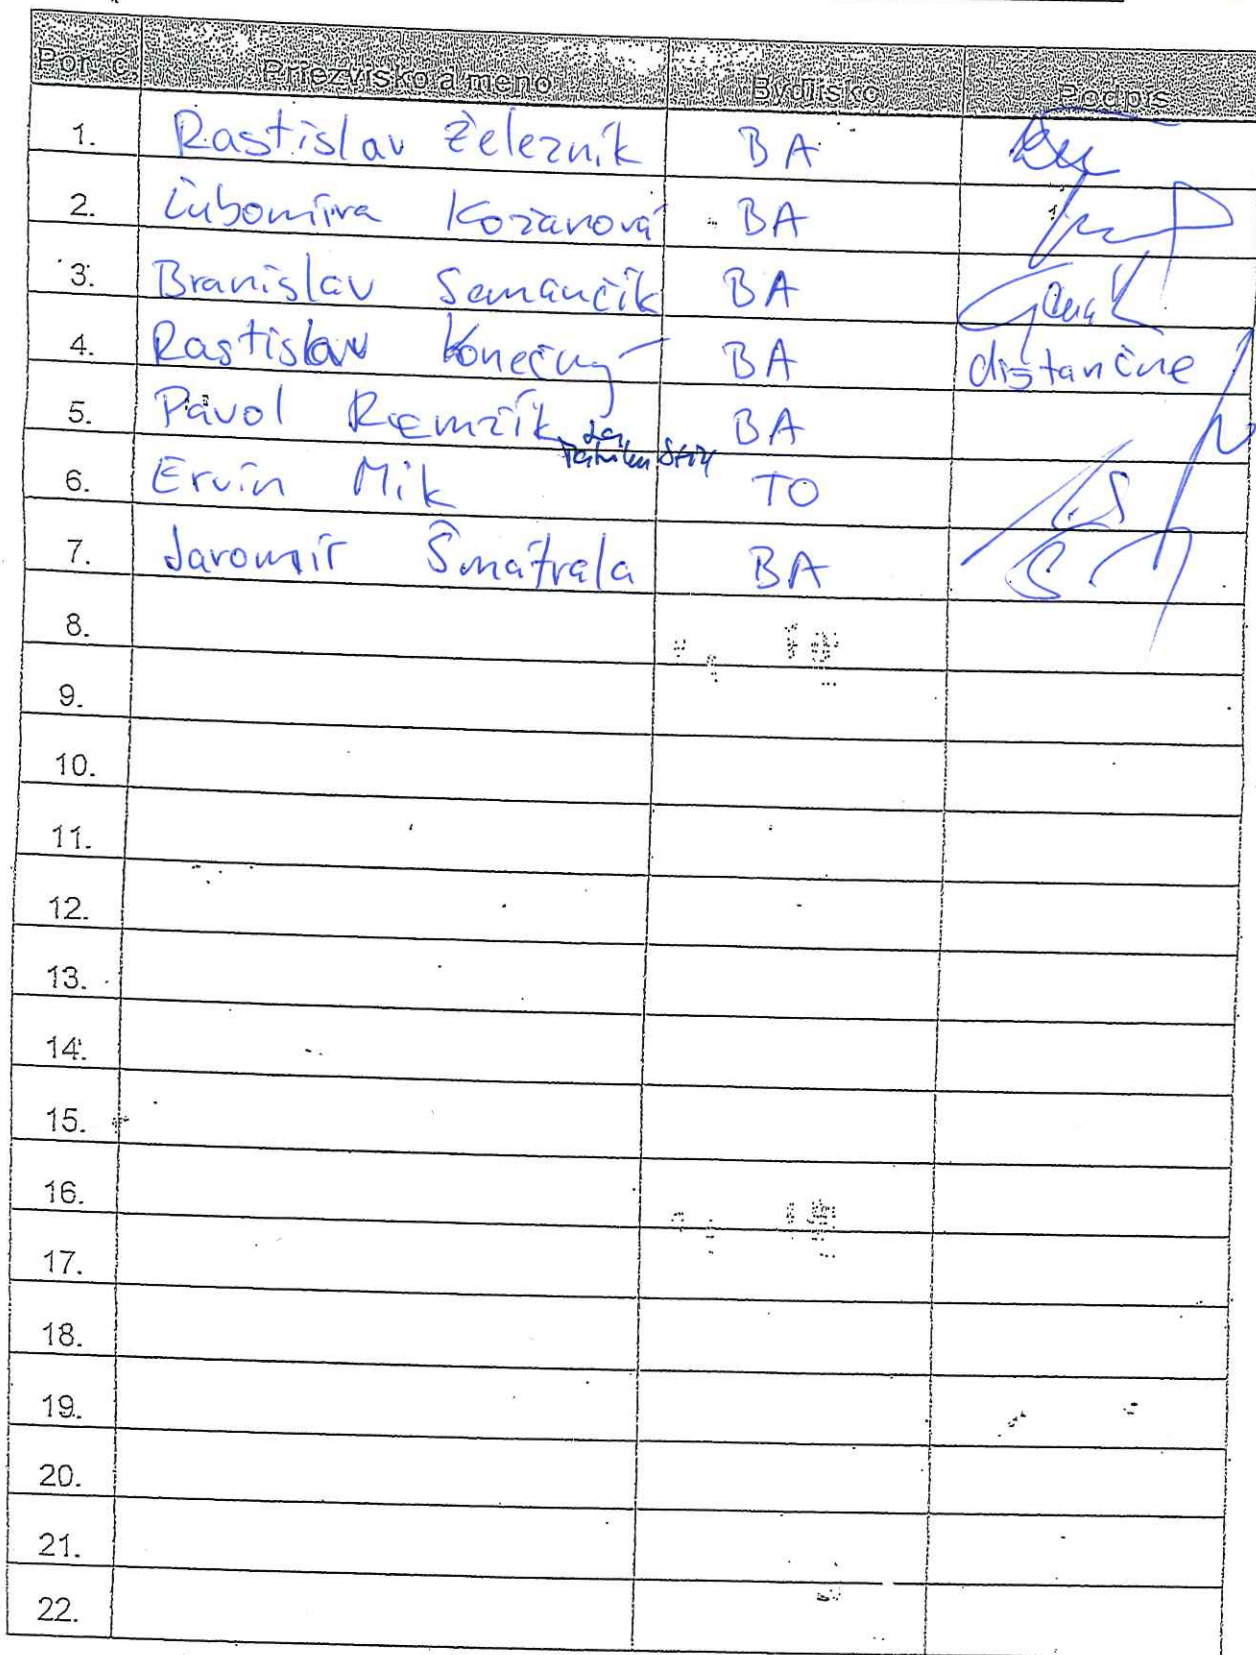 Por. č. Priezvisko a meno Bydlisko Podpis
1. Rastislav Železník BA
2. Ľubomíra Kožanová BA
3. Branislav Semančík BA
4. Rastislav Konečný BA dištančne
5. Pavol BA
6. Ervín Mik TO
7. Jaromír Šmátrala BA
8.
9.
10.
11.
12.
13.
14.
15.
16.
17.
18.
19.
20.
21.
22.